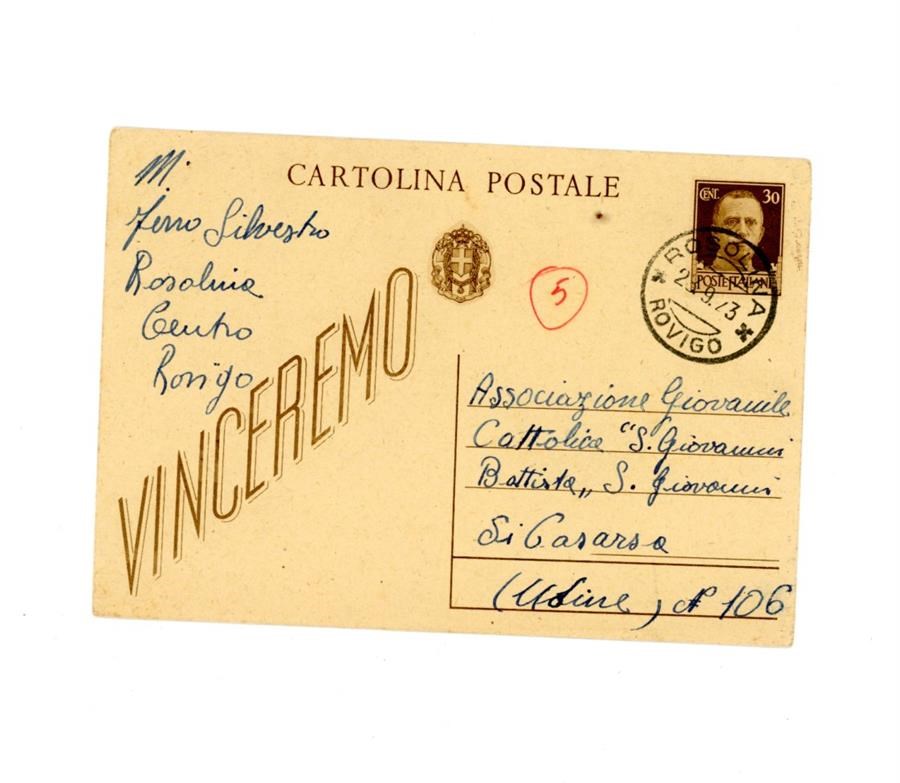 CARTOLINA POSTALE
M.
Ferro Silvestro
Rosolina
Centro
Rovigo
VINCEREMO
CENT. 30
POSTE ITALIANE
ROSOLINA
ROVIGO
5
Associazione Giovanile
Cattolica "S. Giovanni
Battista„ S. Giovanni
Di Casarsa
(Udine) N 106